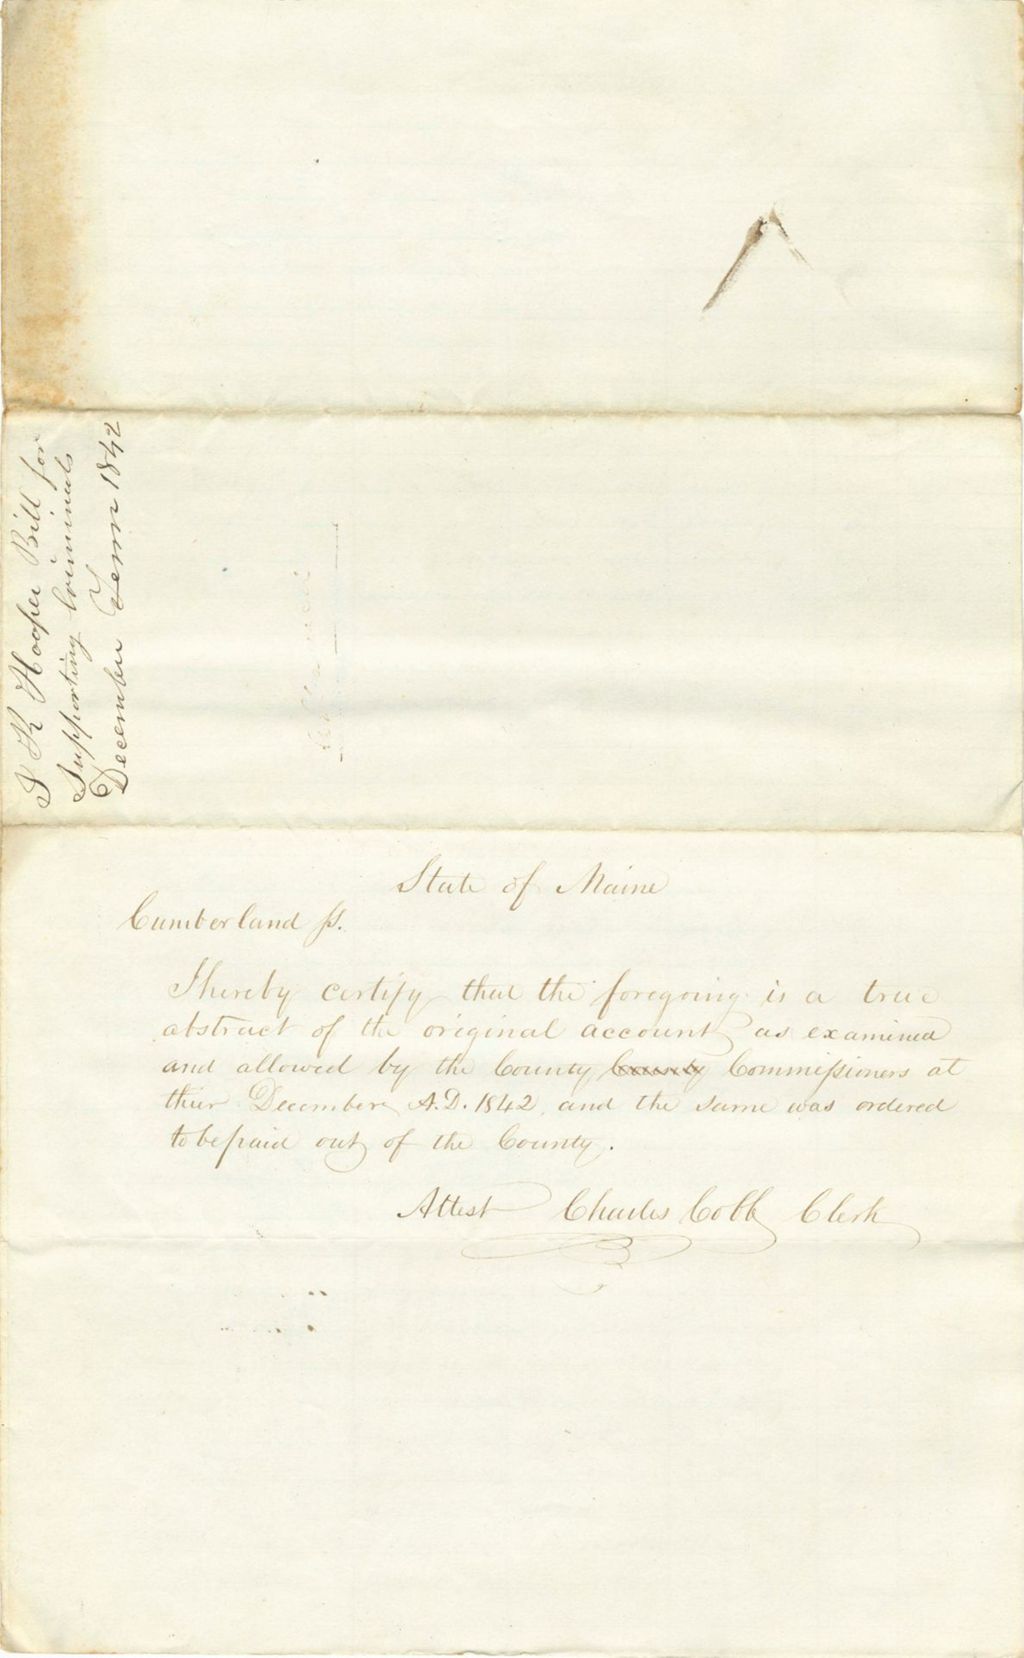 J K Hooper Bill for
Supporting Criminals
December Term 1842
State of Maine
Cumberland ss.
I hereby certify that the foregoing is a true
abstract of the original account as examined
and allowed by the County County Commissioners at
thier December A.D. 1842, and the same was ordered
to be paid out of the County.
Attest Charles Cobb Clerk